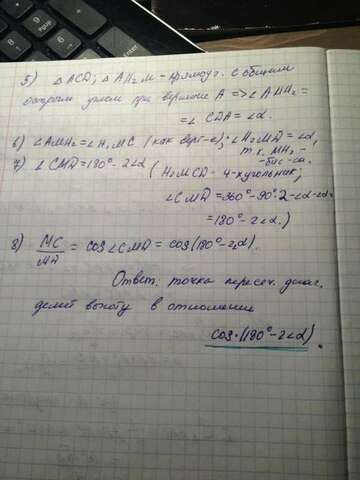 5) △ACD; △AH₂M - прямоуг. с общим
острым углом при вершине A => ∠AMH₂ =
= ∠CDA = ∠α.
6) ∠AMH₂ = ∠H₁MC (как верт-е); ∠H₂MD = ∠α,
т.к. MH₂ -
- бис-са.
7) ∠CMD = 180° - 2∠α (H₁MCD - 4-хугольник;
∠CMD = 360° - 90°·2 - ∠α - ∠α
= 180° - 2∠α.)
8) MC/MD = cos∠CMD = cos(180° - 2∠α).
Ответ: точка пересеч. диаг.
делит высоту в отношении
cos·(180° - 2∠α).